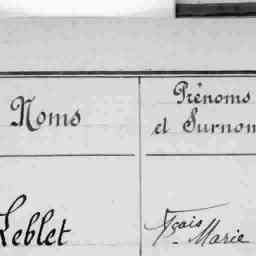 Noms
Prénoms
et Surnom
Leblet
Fçais
Marie